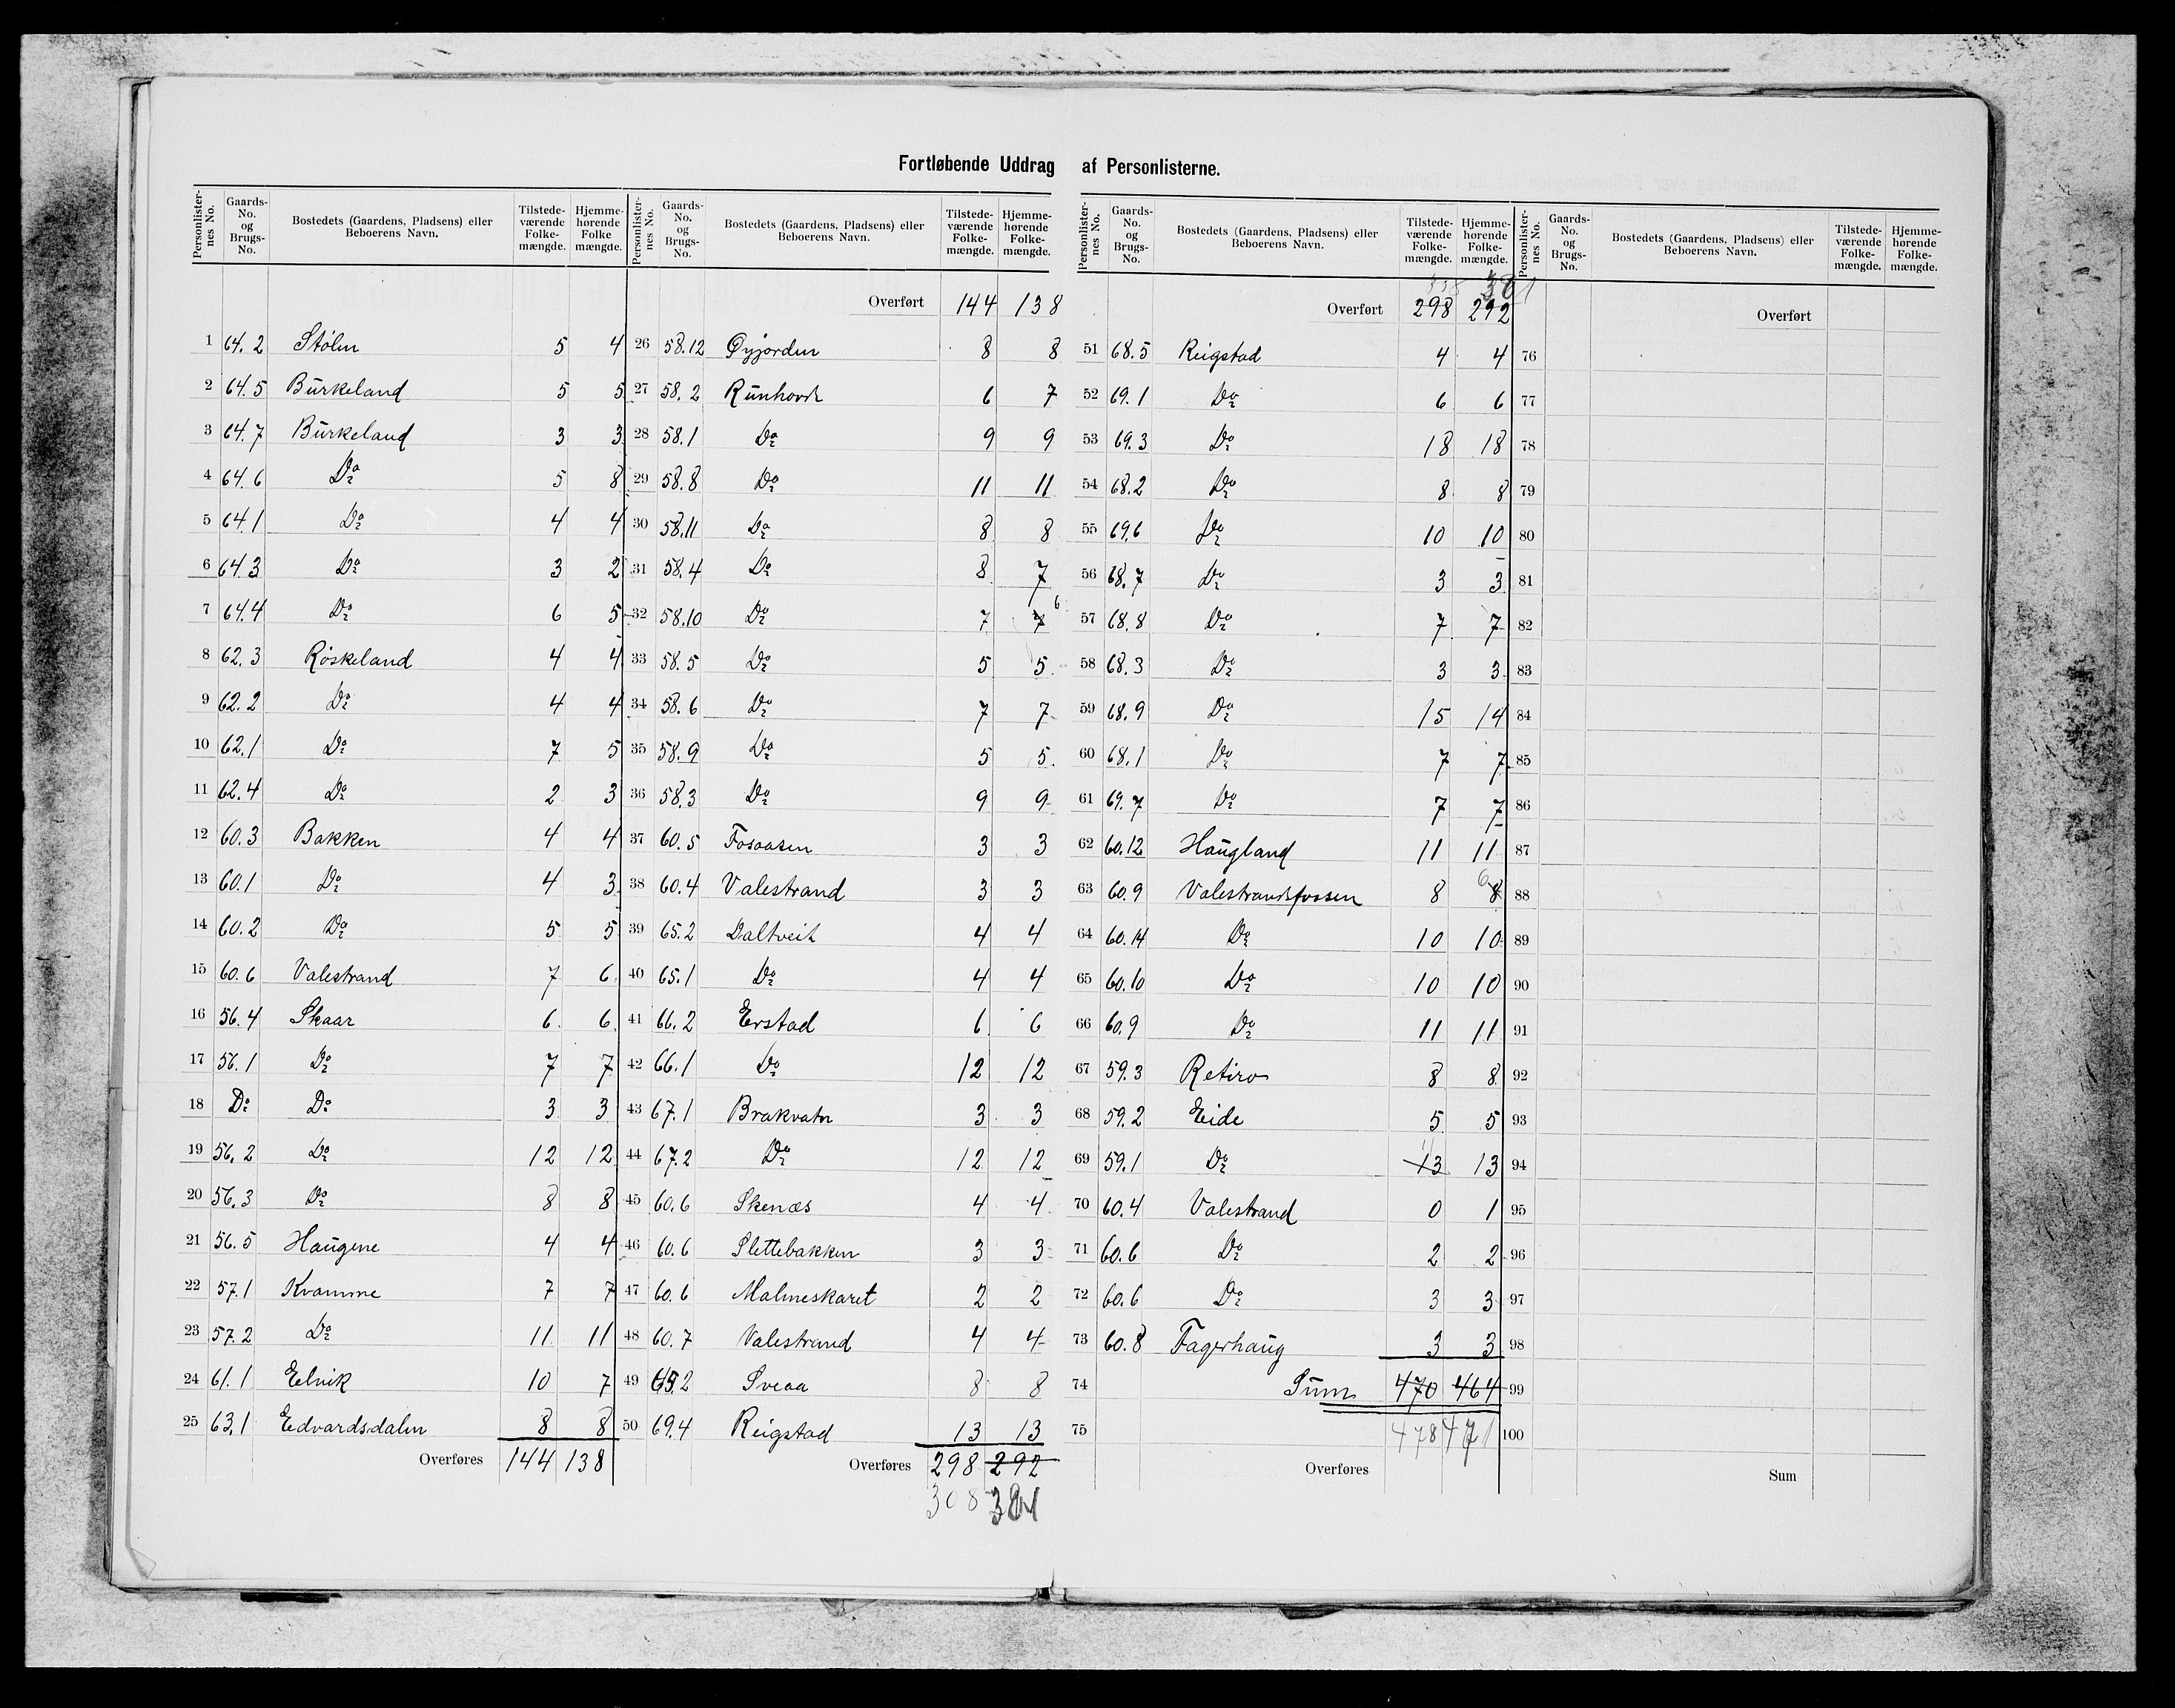 Fortløbende Uddrag af Personlisterne.
Personlisternes No. | Gaards-No. og Brugs-No. | Bostedets (Gaardens, Pladsens) eller Beboerens Navn. | Tilstedeværende Folkemængde. | Hjemmehørende Folkemængde.
1 64.2 Stølen 5 4
2 64.5 Burkeland 5 5
3 64.7 Burkeland 3 3
4 64.6 Do 5 8
5 64.1 Do 4 4
6 64.3 Do 3 2
7 64.4 Do 6 5
8 62.3 Røskeland 4 4
9 62.2 Do 4 4
10 62.1 Do 7 5
11 62.4 Do 2 3
12 60.3 Bakken 4 4
13 60.1 Do 4 3
14 60.2 Do 5 5
15 60.6 Valestrand 7 6
16 56.4 Skaar 6 6
17 56.1 Do 7 7
18 Do Do 3 3
19 56.2 Do 12 12
20 56.3 Do 8 8
21 56.5 Haugene 4 4
22 57.1 Kvamme 7 7
23 57.2 Do 11 11
24 61.1 Eelvik 10 7
25 63.1 Edvardsdalen 8 8
Overføres 144 138
Personlisternes No. | Gaards-No. og Brugs-No. | Bostedets (Gaardens, Pladsens) eller Beboerens Navn. | Tilstedeværende Folkemængde. | Hjemmehørende Folkemængde.
Overført 144 138
26 58.12 Øyjorden 8 8
27 58.2 Runhovd 6 7
28 58.1 Do 9 9
29 58.8 Do 11 11
30 58.11 Do 8 8
31 58.4 Do 8 7
32 58.10 Do 7 7 6
33 58.5 Do 5 5
34 58.6 Do 7 7
35 58.9 Do 5 5
36 58.3 Do 9 9
37 60.5 Fosaasen 3 3
38 60.4 Valestrand 3 3
39 65.2 Daltveit 4 4
40 65.1 Do 4 4
41 66.2 Erstad 6 6
42 66.1 Do 12 12
43 67.1 Brakvatn 3 3
44 67.2 Do 12 12
45 60.6 Skenæs 4 4
46 60.6 Slettebakken 3 3
47 60.6 Malmeskaret 2 2
48 60.7 Valestrand 4 4
49 65.2 Sveaa 8 8
50 69.4 Reigstad 13 13
Overføres 298 292
308 301
Personlisternes No. | Gaards-No. og Brugs-No. | Bostedets (Gaardens, Pladsens) eller Beboerens Navn. | Tilstedeværende Folkemængde. | Hjemmehørende Folkemængde.
301
Overført 298 292
51 68.5 Reigstad 4 4
52 69.1 Do 6 6
53 69.3 Do 18 18
54 68.2 Do 8 8
55 69.6 Do 10 10
56 68.7 Do 3 3
57 68.8 Do 7 7
58 68.3 Do 3 3
59 68.9 Do 15 14
60 68.1 Do 7 7
61 69.7 Do 7 7
62 60.12 Haugland 11 11
63 60.9 Valestrandsfossen 8 8 6
64 60.14 Do 10 10
65 60.10 Do 10 10
66 60.9 Do 11 11
67 59.3 Retiro 8 8
68 59.2 Eide 5 5
69 59.1 Do 13 11 13
70 60.4 Valestrand 0 1
71 60.6 Do 2 2
72 60.6 Do 3 3
73 60.8 Fagerhaug 3 3
74 Sum 470 464
75 478 471
Overføres
Personlisternes No. | Gaards-No. og Brugs-No. | Bostedets (Gaardens, Pladsens) eller Beboerens Navn. | Tilstedeværende Folkemængde. | Hjemmehørende Folkemængde.
Overført
76
77
78
79
80
81
82
83
84
85
86
87
88
89
90
91
92
93
94
95
96
97
98
99
100
Sum